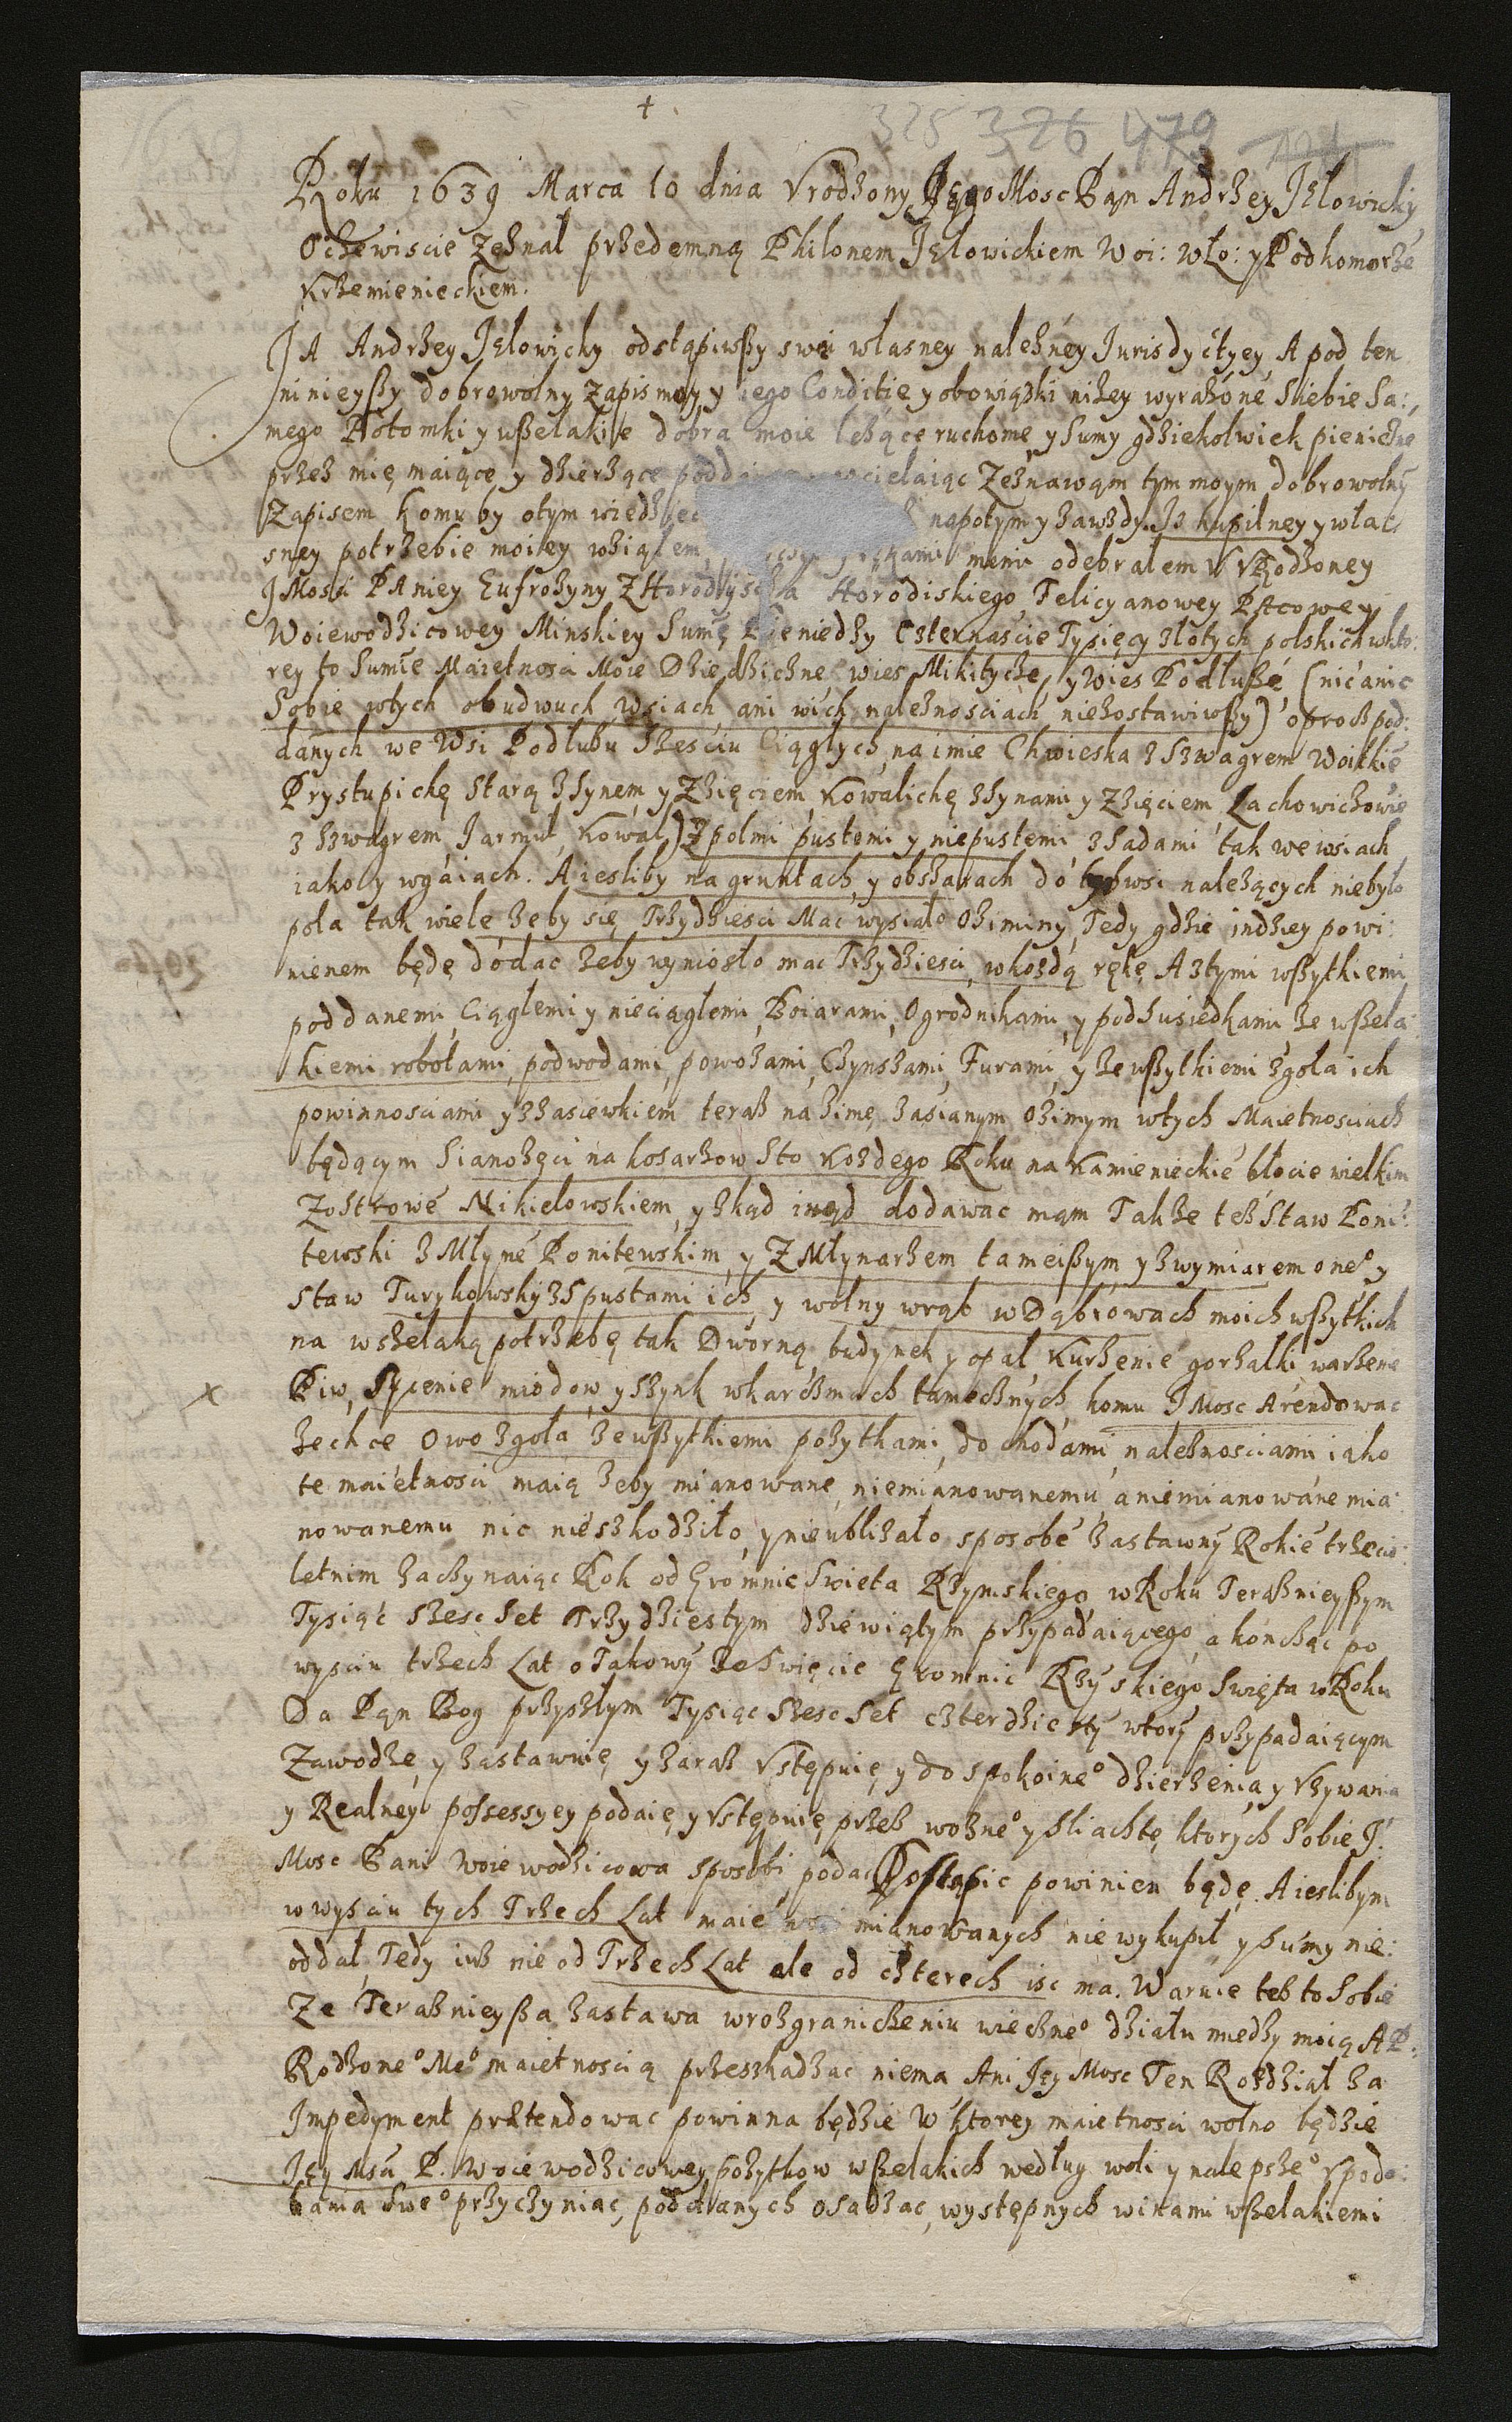 †
325 326 479
Roku 1639 Marca 10 dnia Vrodzony Jego Mosc Pąn Andrzey Jełowicky
Oczewiscie zeznał przedemną Philonem Jełowickiem Woi: Wło: y Podkomorzé
Krzemienieckiem.
JA Andrzey Jełowicky odstąpiwszy swei własney nalezney Jurisdyctyey, A pod ten
ninieyszy dobrowolny zapis moy y iego Conditie y obowiązki nizey wyrazone Siebie Sa:
mego Potomki y wszelakie dobra moie lezące ruchome, y Sumy gdziekolwiek pieniezne
przez mię maiące y dzierzące Zeznawąm tym moym dobrowolny
Zapisem komu by otym wiedziec napotym y zawzdy. Iz kupilney y włas
sney potrzebie moiey wziąłem, rękami memi odebrałem V Vrodzoney
JMosci PAniey Eufrozyny Z Horodyscza Horodiskiego, Felicyanowey PAcowey
Woiewodzicowey Minskiey Sumę Pieniedzy Czternascie Tysięcy złotych polskich wkto:
rey to Sumie Maietnosci Moie Dziedziczne wies Mikitycze, y wies Podłuzé (nic anic
Sobie wtych obudwuch Wsiach, ani wich naleznosciach niezostawiwszy) oprocz pod:
danych we Wsi Podłubu Szesciu Ciągłych, na imie Chwieska z Szwagrem Woitkię
Prystupichę Starą z Synem y Zzięciem, Kowalichę z Synami y Zzięciem Lachowiczowię
z szwagrem Jarmuł, Kowal) Z polmi pustemi y niepustemi z Sadami tak we wsiach
iako y wgáiach. A iesliby na gruntach, y obszarach do tych wsi nalezących niebyło
pola tak wiele zeby się Trzydziesci Mac wysiało Oziminy, Tedy gdzie indziey powi:
nienem będę dodac zeby wyniosło mac Trzydziesci, wkozdą rękę A z tymi wszytkiemi
poddanemi, Ciągłemi y nieciągłemi, Boiarami, Ogrodnikami, y podsusiedkami ze wszela:
kiemi robotami, podwodami, powozami, Czynszami, Furami, y ze wszytkiemi zgoła ich
powinnosciami y z zasiewkiem teraz na zimę zasianym ozimym wtych Maietnosciach
będącym Sianozęci na kosarzow Sto kozdego Roku na Kamienieckié błocie wielkim
Zostrowé Nikielowskiem, y zkąd inąd dodawac mąm Takze tez Staw Poni:
tewski z Młyné Ponitewskim, y Z Młynarzem tameiszym, y z wymiarem oneº y
Staw Turykowsky z Spustami ich, y wolny wrąb w Dąbrowach moich wszytkich
na wszelaką potrzebę tak Dworną budynek y opał Kurzenié gorzałki warzene
Piw, Sycenie miodow, y szynk wkarczmach tamecznych, komu JMosc Arendowac
zechce Owo zgoła ze wszytkiemi pozytkami, dochodami, naleznosciami iako
te maietnosci maią zeby mianowane, niemianowanemu, a niemianowane mia:
nowanemu nic nieszkodziło, y nieublizało sposobé zastawny Rokié trzecio:
letnim zaczynaiąc Rok od Gromnic Swieta Rzymskiego, w Roku Terazniejszym
Tysiąc Szesc Set Trzydziestym dziewiątym przypadaiącego, a koncząc po
wysciu trzech Lat o Takowy ze Swięcie Gromnic Rzyskiego Swięta w Roku
Da Pąn Bog przyszłym Tysiąc Szesc Set czterdziesty wtory przypadaiącym
Zawodze, y zastawuię y zaraz Vstępuię, y do spokoineº dzierzenia, y Vzywania
y Realney possessyey podaię, y Vstępuię przez wozneº y sliachtę ktorych Sobie J:
Mosc Pani Woiewodzicowa sposobi podac Postąpic powinien będę. A ieslibym
w wysciu tych Trzech Lat maietnosci mianowanych nie wykupił y sumy nie:
oddał, Tedy iuz nie od Trzech Lat ale od czterech isc ma. Waruie tez to Sobie
Ze Terazniejsza zastawa wrozgraniczeniu wieczneº działu miedzy moią A P:
Rodzoneº Meº maietnoscią przeszkadzac niema Ani Jey Mosc Ten Rozdział za
Impedyment prætendowac powinna będzie W ktorey maietnosci wolno będzie
Jey Msci P. Woiewodzicowey pozytkow wszelakich według woli y nalepszeº Vpodo:
bania sweº przyczyniac, poddanych osadzac, występnych winami wszelakiemi